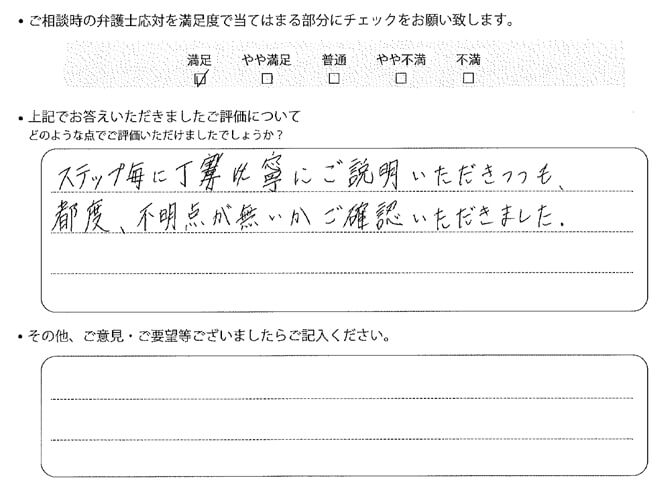 ・ご相談時の弁護士応対を満足度で当てはまる部分にチェックをお願い致します。
満足 やや満足 普通 やや不満 不満
☑ ☐ ☐ ☐ ☐
・上記でお答えいただきましたご評価について
どのような点でご評価いただけましたでしょうか？
ステップ毎に丁寧にご説明いただきつつも、
都度、不明点が無いかご確認いただきました.
・その他、ご意見・ご要望等ございましたらご記入ください。